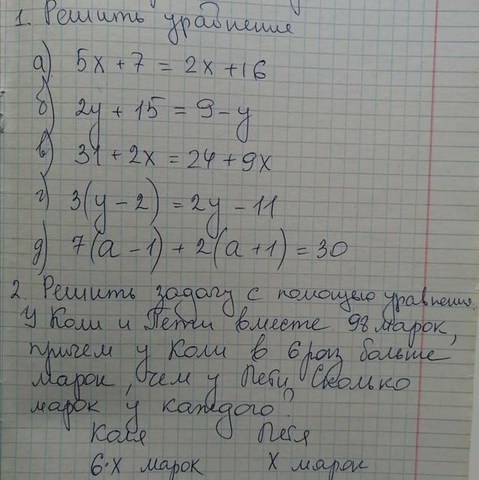 1. Решить уравнение
а) 5x + 7 = 2x + 16
б) 2y + 15 = 9 - y
в) 31 + 2x = 24 + 9x
г) 3(y - 2) = 2y - 11
д) 7(a - 1) + 2(a + 1) = 30
2. Решить задачу с помощью уравнения.
У Коли и Пети вместе 98 марок,
причем у Коли в 6 раз больше
марок, чем у Пети. Сколько
марок у каждого?
Коля Петя
6·x марок x марок